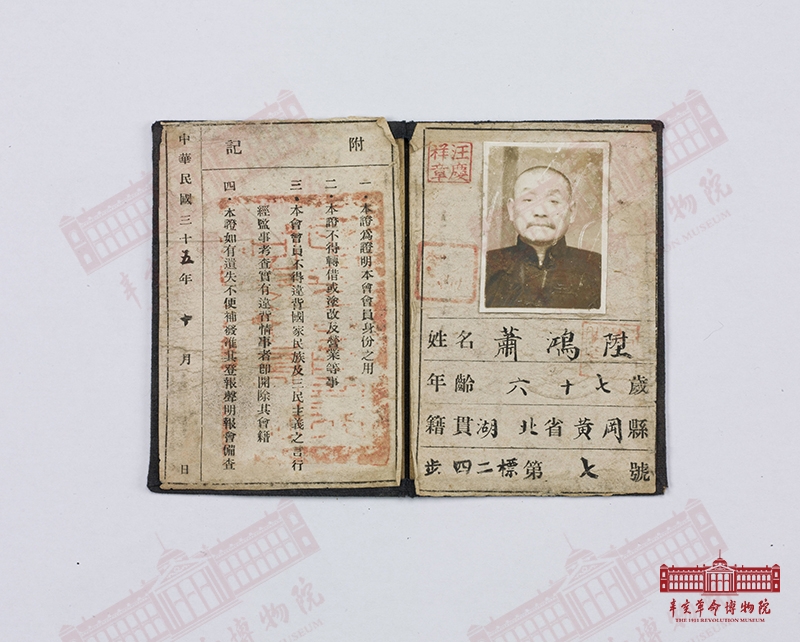 汪慶祥章
姓名 蕭鴻陞
年齡 六十七歲
籍貫 湖北省黄岡縣
步四二標第七號
附記
一．本證爲證明本會會員身份之用
二．本證不得轉借或塗改及營業等事
三．本會會員不得違背國家民族及三民主義之言行
經監事考查實有違背情事者卽開除其會籍
四．本證如有遺失不便補發准其登報聲明報會備查
中華民國三十五年十月 日
辛亥革命博物院
THE 1911 REVOLUTION MUSEUM